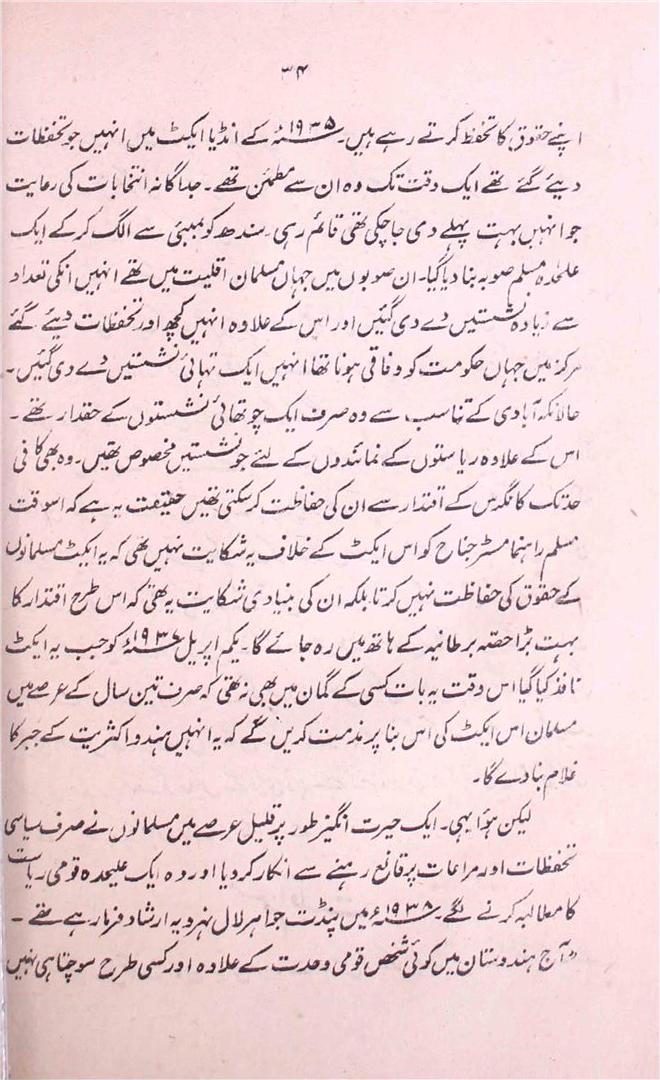 ۳۴
اپنے حقوق کا تحفظ کرتے رہے ہیں۔ ۱۹۳۵ء کے انڈیا ایکٹ میں انہیں جو تحفظات
دیئے گئے تھے ایک وقت تک وہ ان سے مطمئن تھے۔ جداگانہ انتخابات کی رعایت
جو انہیں بہت پہلے دی جا چکی تھی قائم رہی۔ سندھ کو بمبئی سے الگ کر کے ایک
علحدہ مسلم صوبہ بنا دیا گیا۔ ان صوبوں میں جہاں مسلمان اقلیت میں تھے انہیں انکی تعداد
سے زیادہ نشستیں دے دی گئیں اور اس کے علاوہ انہیں کچھ اور تحفظات دیئے گئے
مرکز میں جہاں حکومت کو وفاقی ہونا تھا انہیں ایک تہائی نشستیں دے دی گئیں۔
حالانکہ آبادی کے تناسب سے وہ صرف ایک چوتھائی نشستوں کے حقدار تھے۔
اس کے علاوہ ریاستوں کے نمائندوں کے لئے جو نشستیں مخصوص تھیں۔ وہ بھی کافی
حد تک کانگرس کے اقتدار سے ان کی حفاظت کر سکتی تھیں حقیقت یہ ہے کہ اسوقت
مسلم راہنما مسٹر جناح کو اس ایکٹ کے خلاف یہ شکایت نہیں تھی کہ یہ ایکٹ مسلمانوں
کے حقوق کی حفاظت نہیں کرتا بلکہ ان کی بنیادی شکایت یہ تھی کہ اس طرح اقتدار کا
بہت بڑا حصہ برطانیہ کے ہاتھ میں رہ جائے گا۔ یکم اپریل ۱۹۳۷ء کو جب یہ ایکٹ
نافذ کیا گیا اس وقت یہ بات کسی کے گمان میں بھی نہ تھی کہ صرف تین سال کے عرصے میں
مسلمان اس ایکٹ کی اس بنا پر مذمت کریں گے کہ یہ انہیں ہندو اکثریت کے جبر کا
غلام بنا دے گا۔
لیکن ہوا یہی۔ ایک حیرت انگیز طور پر قلیل عرصے میں مسلمانوں نے صرف سیاسی
تحفظات اور مراعات پر قانع رہنے سے انکار کر دیا اور وہ ایک علیحدہ قومی ریاست
کا مطالبہ کرنے لگے۔ ۱۹۳۸ء میں پنڈت جواہر لال نہرو یہ ارشاد فرما رہے تھے۔
"آج ہندوستان میں کوئی شخص قومی وحدت کے علاوہ اور کسی طرح سوچتا ہی نہیں